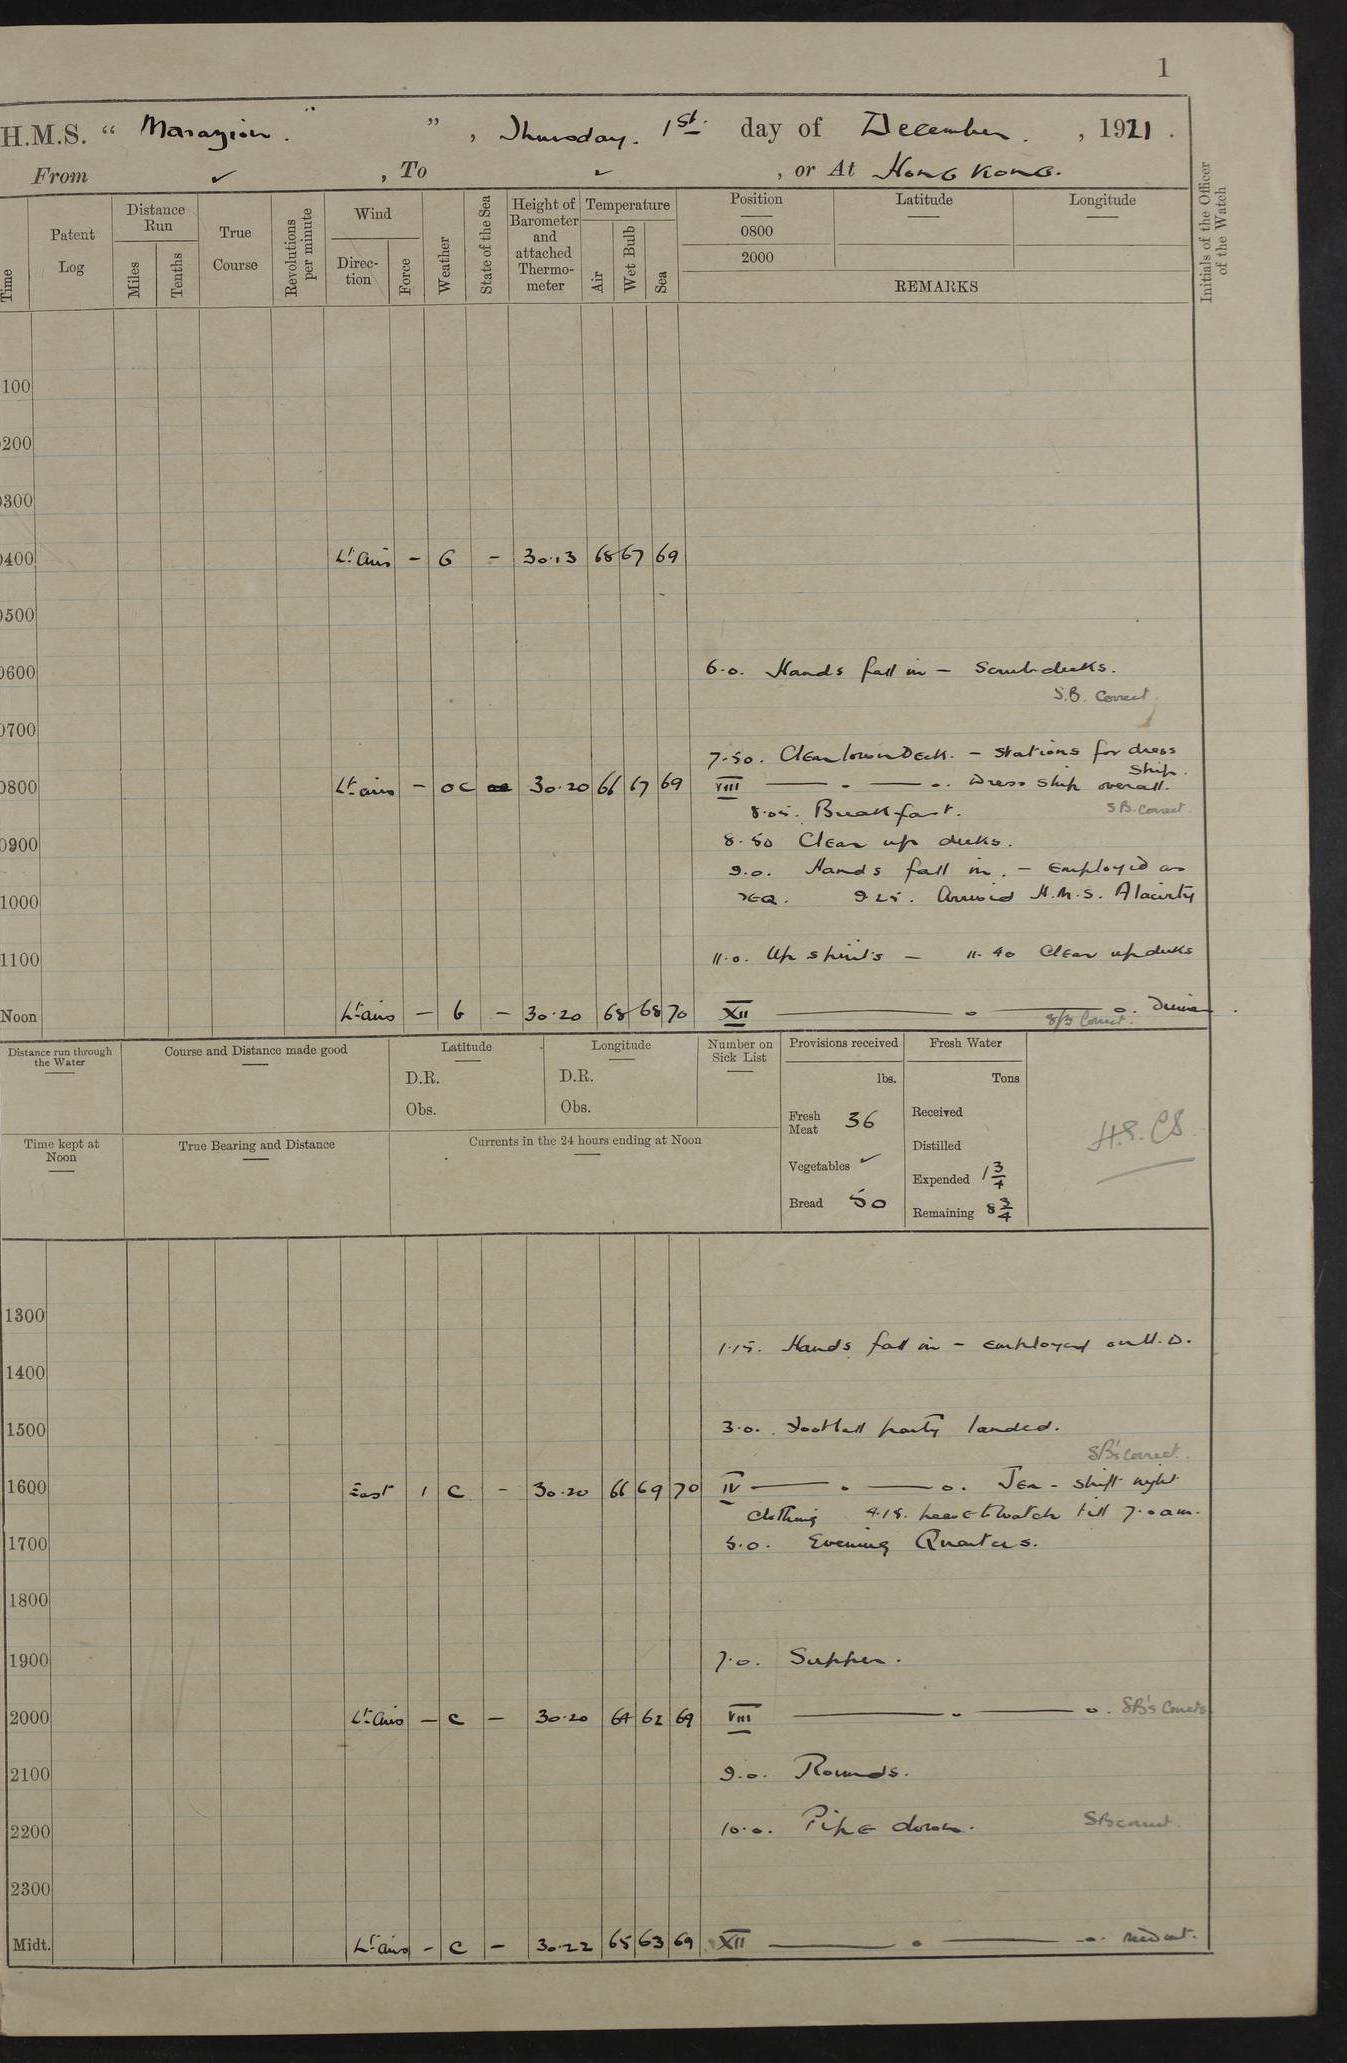 1
H.M.S. “ Marazion. ” , Thursday. 1st. day of December. , 1921.
From ✓ , To ✓ , or At Hong Kong.
Time
Patent Log
Distance Run
Miles
Tenths
True Course
Revolutions per minute
Wind
Direction
Force
Weather
State of the Sea
Height of Barometer and attached Thermometer
Temperature
Air
Wet Bulb
Sea
Position
Latitude
Longitude
0800
2000
REMARKS
Initials of the Officer of the Watch
100
0200
0300
0400 Lt. airs - G - 30.13 68 67 69
0500
0600 6.0. Hands fall in - Scrub decks.
S.B. Correct
0700
7.50. Clear lower Deck. - stations for dress ship.
0800 Lt. airs - oc 30.20 66 67 69 VIII — . — o. Dress ship overall.
8.05. Breakfast. S.B. Correct
0900 8.50 Clear up decks.
9.0. Hands fall in. - Employed as
1000 req. 9.25. Arrived H.M.S. Alacrity
1100 11.0. Up spirits - 11.40 Clear up decks
Noon Lt. airs - 6 - 30.20 68 68 70 XII — o — o. Dinner
SB Correct.
Distance run through the Water
Course and Distance made good
Latitude
D.R.
Obs.
Longitude
D.R.
Obs.
Number on Sick List
Provisions received
lbs.
Fresh Meat 36
Vegetables ✓
Bread 50
Fresh Water
Tons
Received
Distilled
Expended 1 3/4
Remaining 8 3/4
Time kept at Noon
True Bearing and Distance
Currents in the 24 hours ending at Noon
1300
1.15. Hands fall in - employed on U.D.
1400
1500 3.0. Football party landed.
SB's correct.
1600 East 1 C - 30.20 66 69 70 IV — . — o. Tea - shift night
clothing 4.15. leave to watch till 7.0 am.
1700 5.0. Evening Quarters.
1800
1900 7.0. Supper.
2000 Lt. airs - c - 30.20 64 62 69 VIII — . — o. SB's Correct
2100 9.0. Rounds.
2200 10.0. Pipe down. SB correct.
2300
Midt. Lt. airs - c - 30.22 65 63 69 XII — . — o.